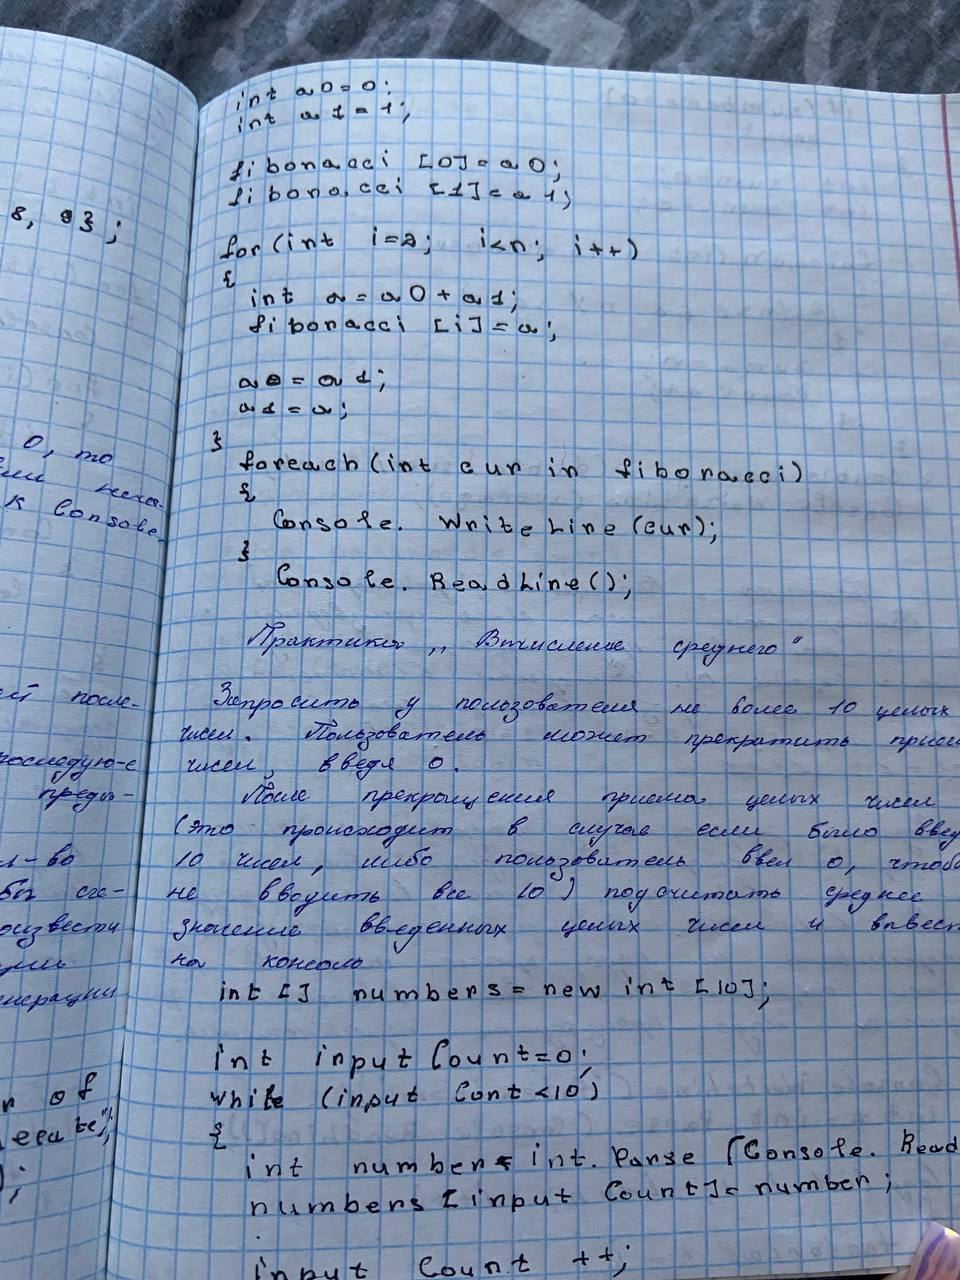 8, 9};
0, то
К Console.
ет после-
последую-е
преды-
л-во
бы сге-
оизвести
нерации
r of
);
int a0=0;
int a1=1;
fibonacci [0]=a0;
fibonacci [1]=a1;
for(int i=2; i<n; i++)
{
int a=a0+a1;
fibonacci [i]=a;
a0=a1;
a1=a;
}
foreach(int cur in fibonacci)
{
Console. WriteLine(cur);
}
Console. ReadLine();
Практика „Вычисление среднего"
Запросить у пользователя не более 10 целых
чисел. Пользователь может прекратить прием
чисел, введя 0.
После прекращения приема целых чисел
(это происходит в случае если было введ
10 чисел, либо пользователь ввел 0, чтобы
не вводить все 10) подсчитать среднее
значение введенных целых чисел и вывест
на консоль
int [] numbers = new int [10];
int input Count=0;
while (input Cont <10)
{
int number = int. Parse (Console. Read
numbers [input Count]= number;
input Count ++;